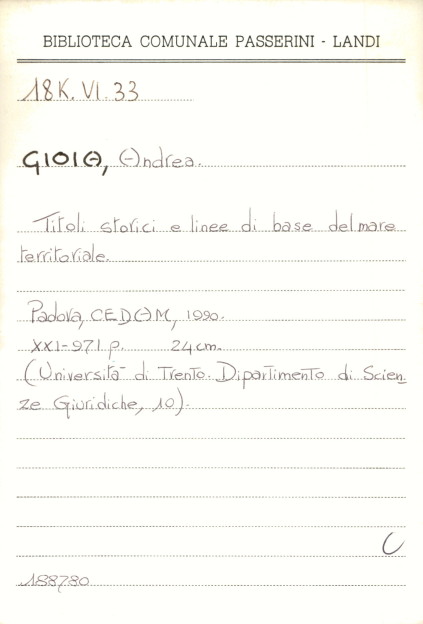 BIBLIOTECA COMUNALE PASSERINI - LANDI
18K. VI. 33
GIOIA, Andrea.
Titoli storici e linee di base del mare
territoriale.
Padova, CEDAM, 1990.
XXI-971 p. 24 cm.
(Università di Trento. Dipartimento di Scien_
ze Giuridiche, 10).
U
188780